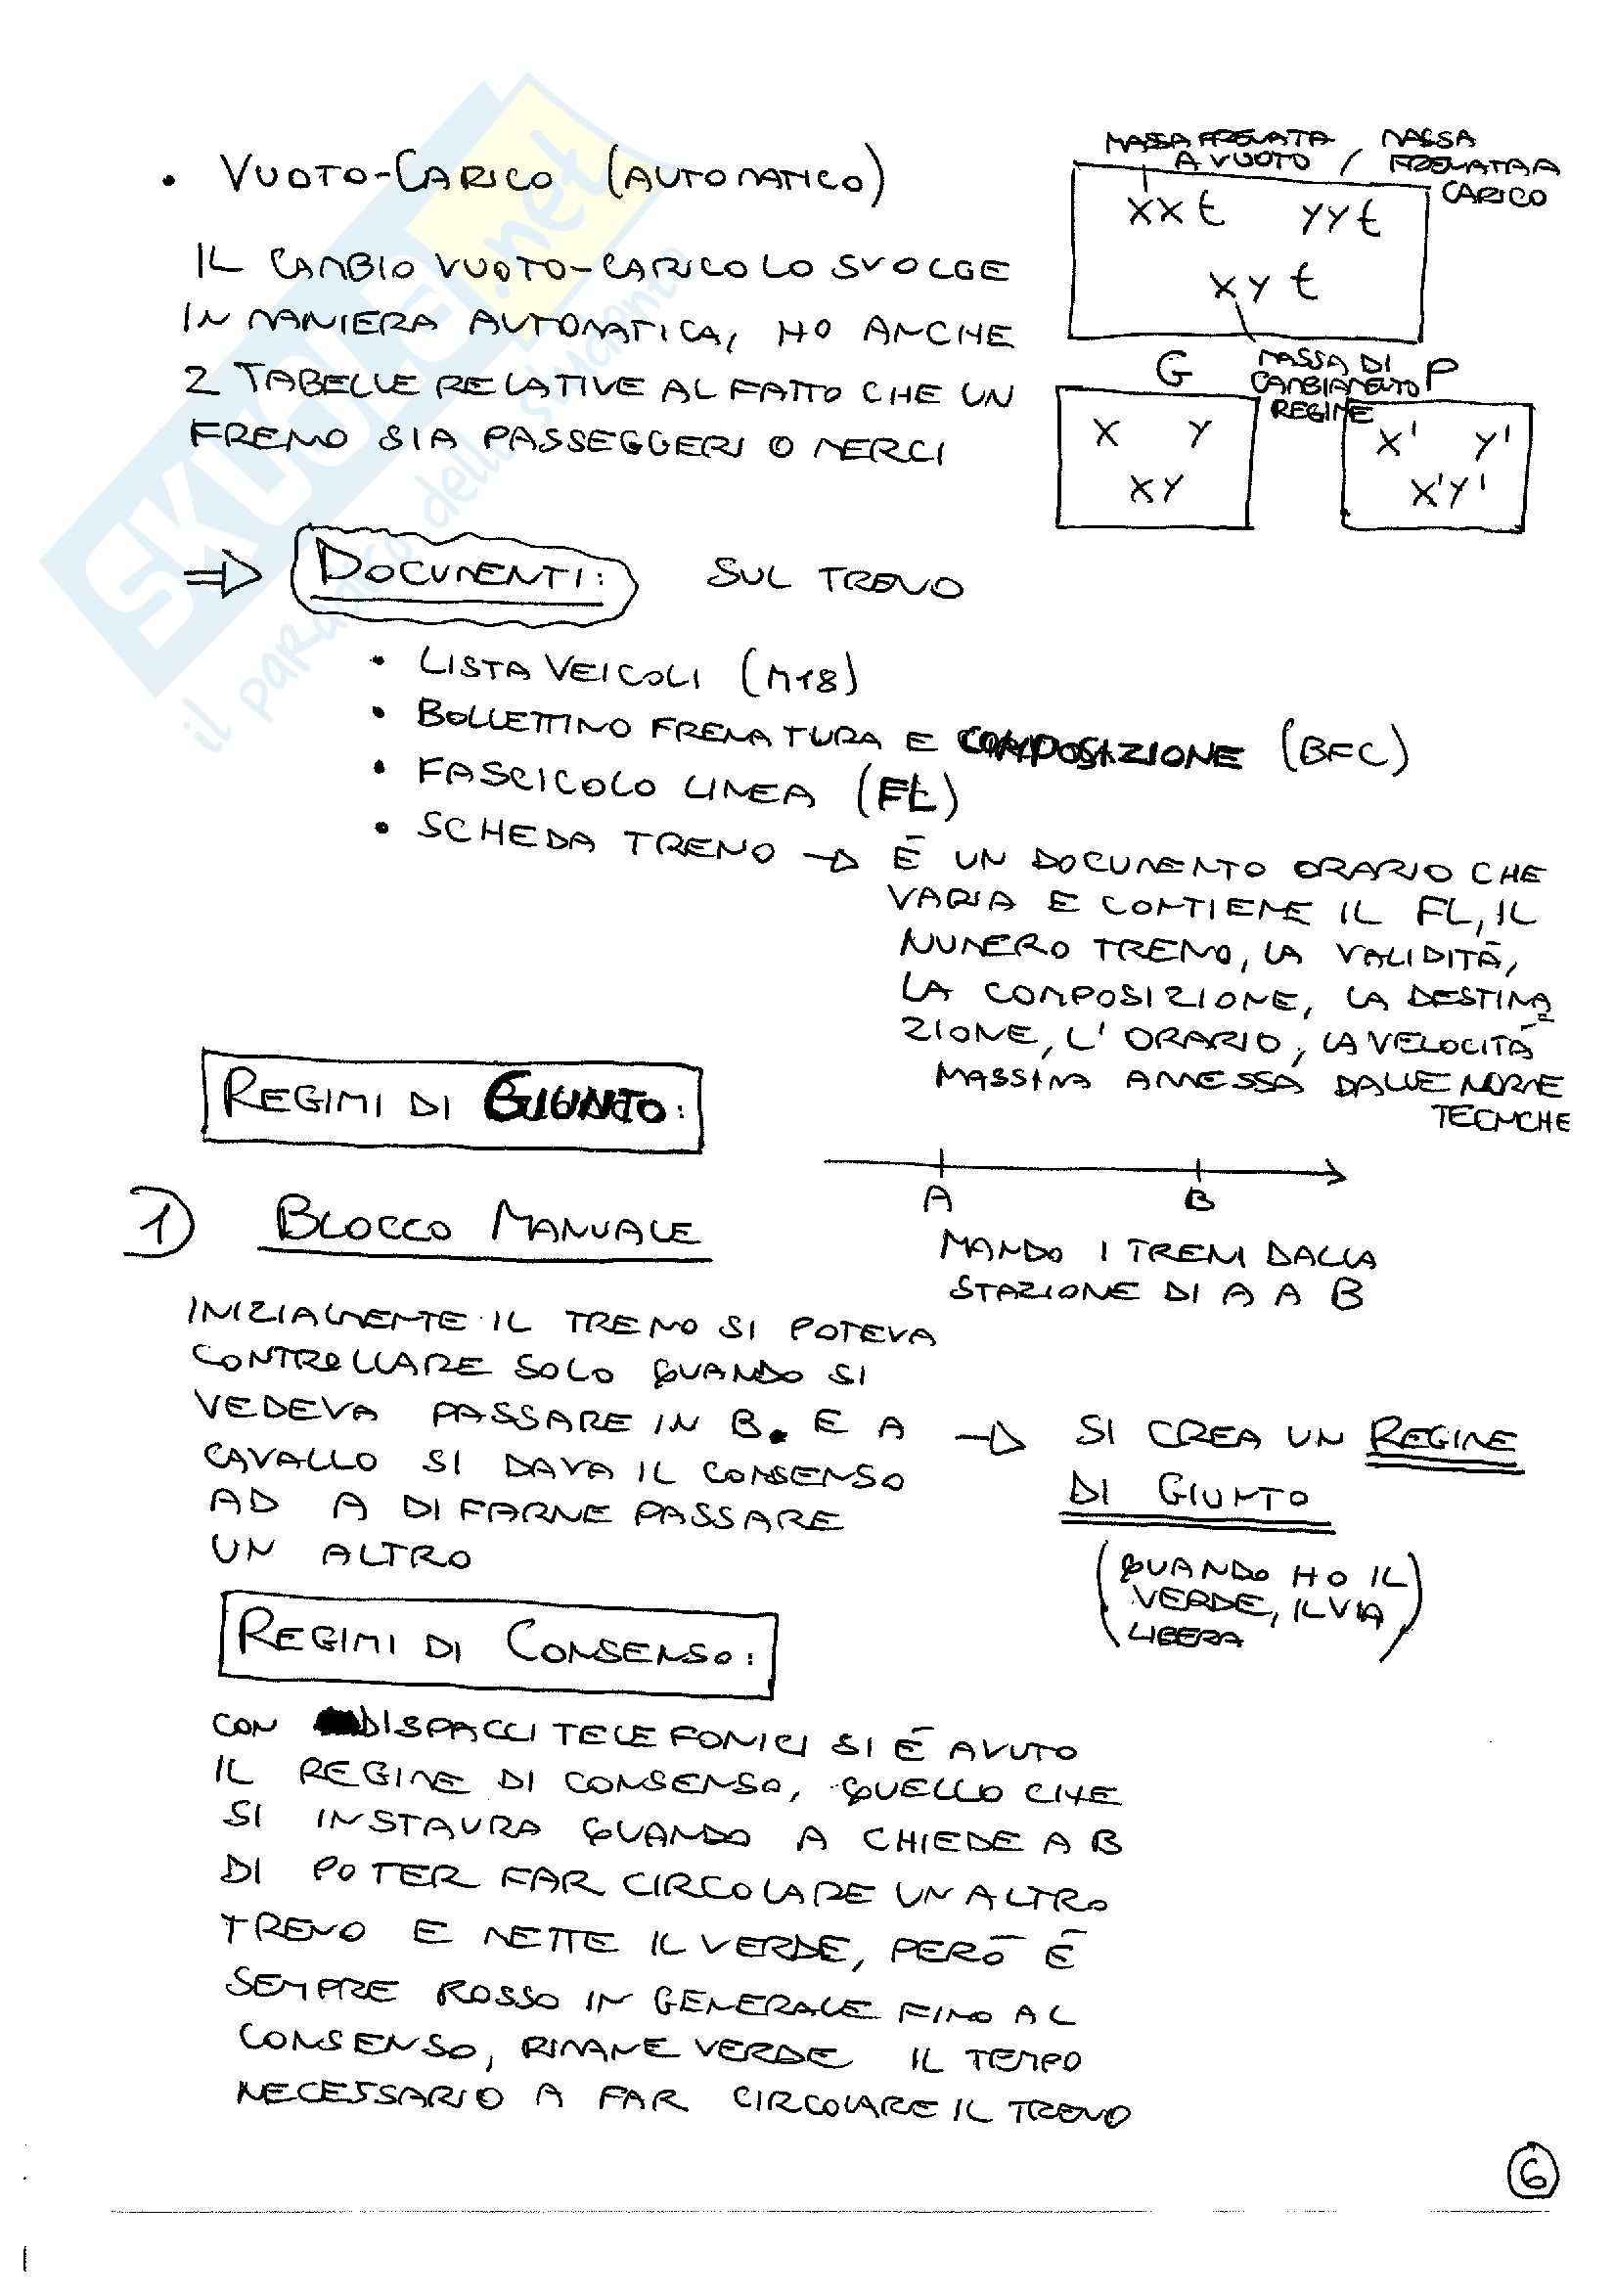 • VUOTO-CARICO (AUTOMATICO)
MASSA FRENATA A VUOTO / MASSA FRENATA A CARICO
xx t yy t
xy t
MASSA DI CAMBIAMENTO REGIME
IL CAMBIO VUOTO-CARICO LO SVOLGE
IN MANIERA AUTOMATICA, HO ANCHE
2 TABELLE RELATIVE AL FATTO CHE UN
FRENO SIA PASSEGGERI O MERCI
G P
X Y X' Y'
XY X'Y'
⇒ DOCUMENTI: SUL TRENO
• LISTA VEICOLI (M18)
• BOLLETTINO FRENATURA E COMPOSIZIONE (BFC)
• FASCICOLO LINEA (FL)
• SCHEDA TRENO → È UN DOCUMENTO ORARIO CHE
VARIA E CONTIENE IL FL, IL
NUMERO TRENO, LA VALIDITÀ,
LA COMPOSIZIONE, LA DESTINA
ZIONE, L'ORARIO, LA VELOCITÀ
MASSIMA AMMESSA DALLE NORME
TECNICHE
REGIMI DI GIUNTO:
A B
1) BLOCCO MANUALE
MANDO I TRENI DALLA
STAZIONE DI A A B
INIZIALMENTE IL TRENO SI POTEVA
CONTROLLARE SOLO QUANDO SI
VEDEVA PASSARE IN B. E A
CAVALLO SI DAVA IL CONSENSO
AD A DI FARNE PASSARE
UN ALTRO
→ SI CREA UN REGIME
DI GIUNTO
(QUANDO HO IL
VERDE, IL VIA
LIBERA)
REGIMI DI CONSENSO:
CON DISPACCI TELEFONICI SI È AVUTO
IL REGIME DI CONSENSO, QUELLO CHE
SI INSTAURA QUANDO A CHIEDE A B
DI POTER FAR CIRCOLARE UN ALTRO
TRENO E METTE IL VERDE, PERÒ È
SEMPRE ROSSO IN GENERALE FINO AL
CONSENSO, RIMANE VERDE IL TEMPO
NECESSARIO A FAR CIRCOLARE IL TRENO
6
SKUOLA.net
il paradiso dello studente